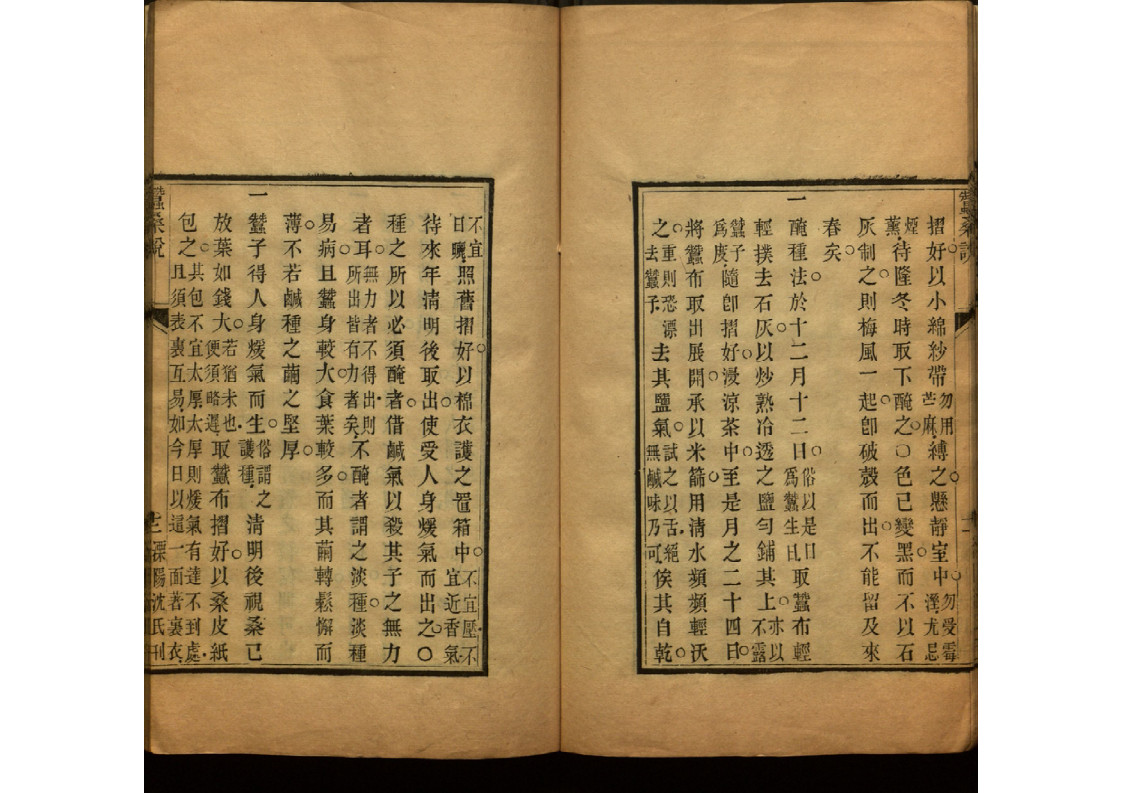 摺好以小綿紗帶勿用苎麻縛之懸靜室中勿受霉溼尤忌
煙薰待隆冬時取下醃之〇色已變黑而不以石
灰制之則梅風一起卽破殼而出不能留及來
春矣
一醃種法於十二月十二日俗以是日爲蠶生日取蠶布輕
輕撲去石灰以炒熟冷透之鹽勻鋪其上亦以不露
蠶子爲度隨卽摺好浸涼茶中至是月之二十四日
將蠶布取出展開承以米篩用淸水頻頻輕沃
之重則恐漂去蠶子去其鹽氣試之以舌絕無鹹味乃可俟其自乾
不宜日曬照舊摺好以棉衣護之置箱中不宜壓不宜近香氣
待來年淸明後取出使受人身煖氣而出之〇
種之所以必須醃者借鹹氣以殺其子之無力
者耳無力者不得出則所出皆有力者矣不醃者謂之淡種淡種
易病且蠶身較大食葉較多而其繭轉鬆懈而
薄不若鹹種之繭之堅厚
一蠶子得人身煖氣而生俗謂之護種淸明後視桑已
放葉如錢大若猶未也便須略遲取蠶布摺好以桑皮紙
包之其包不宜太厚太厚則煖氣有達不到處且須表裏互易如今日以這一面著裏衣
蠶桑說
十二
溧陽沈氏刊